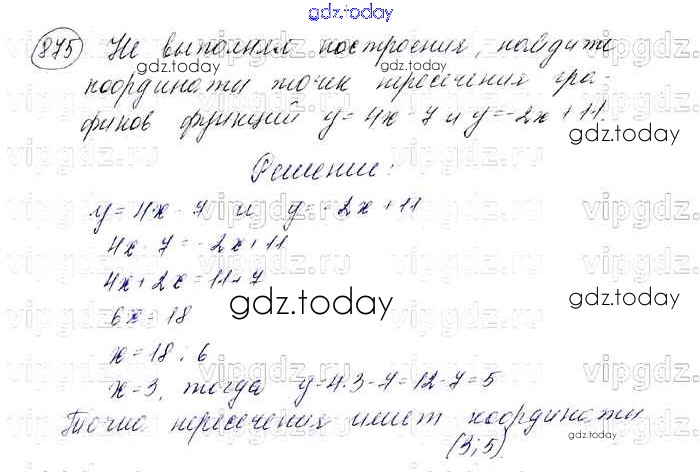 gdz.today
875 Не выполняя построения, найдите
координаты точек пересечения гра-
фиков функций y=4x-7 и y=-2x+11.
Решение:
y=4x-7 и y=-2x+11
4x-7=-2x+11
4x+2x=11+7
6x=18
x=18:6
x=3, тогда y=4·3-7=12-7=5
Точка пересечения имеет координаты
(3;5).
gdz.today
gdz.today
gdz.today
gdz.today
gdz.today
gdz.today
vipgdz.ru